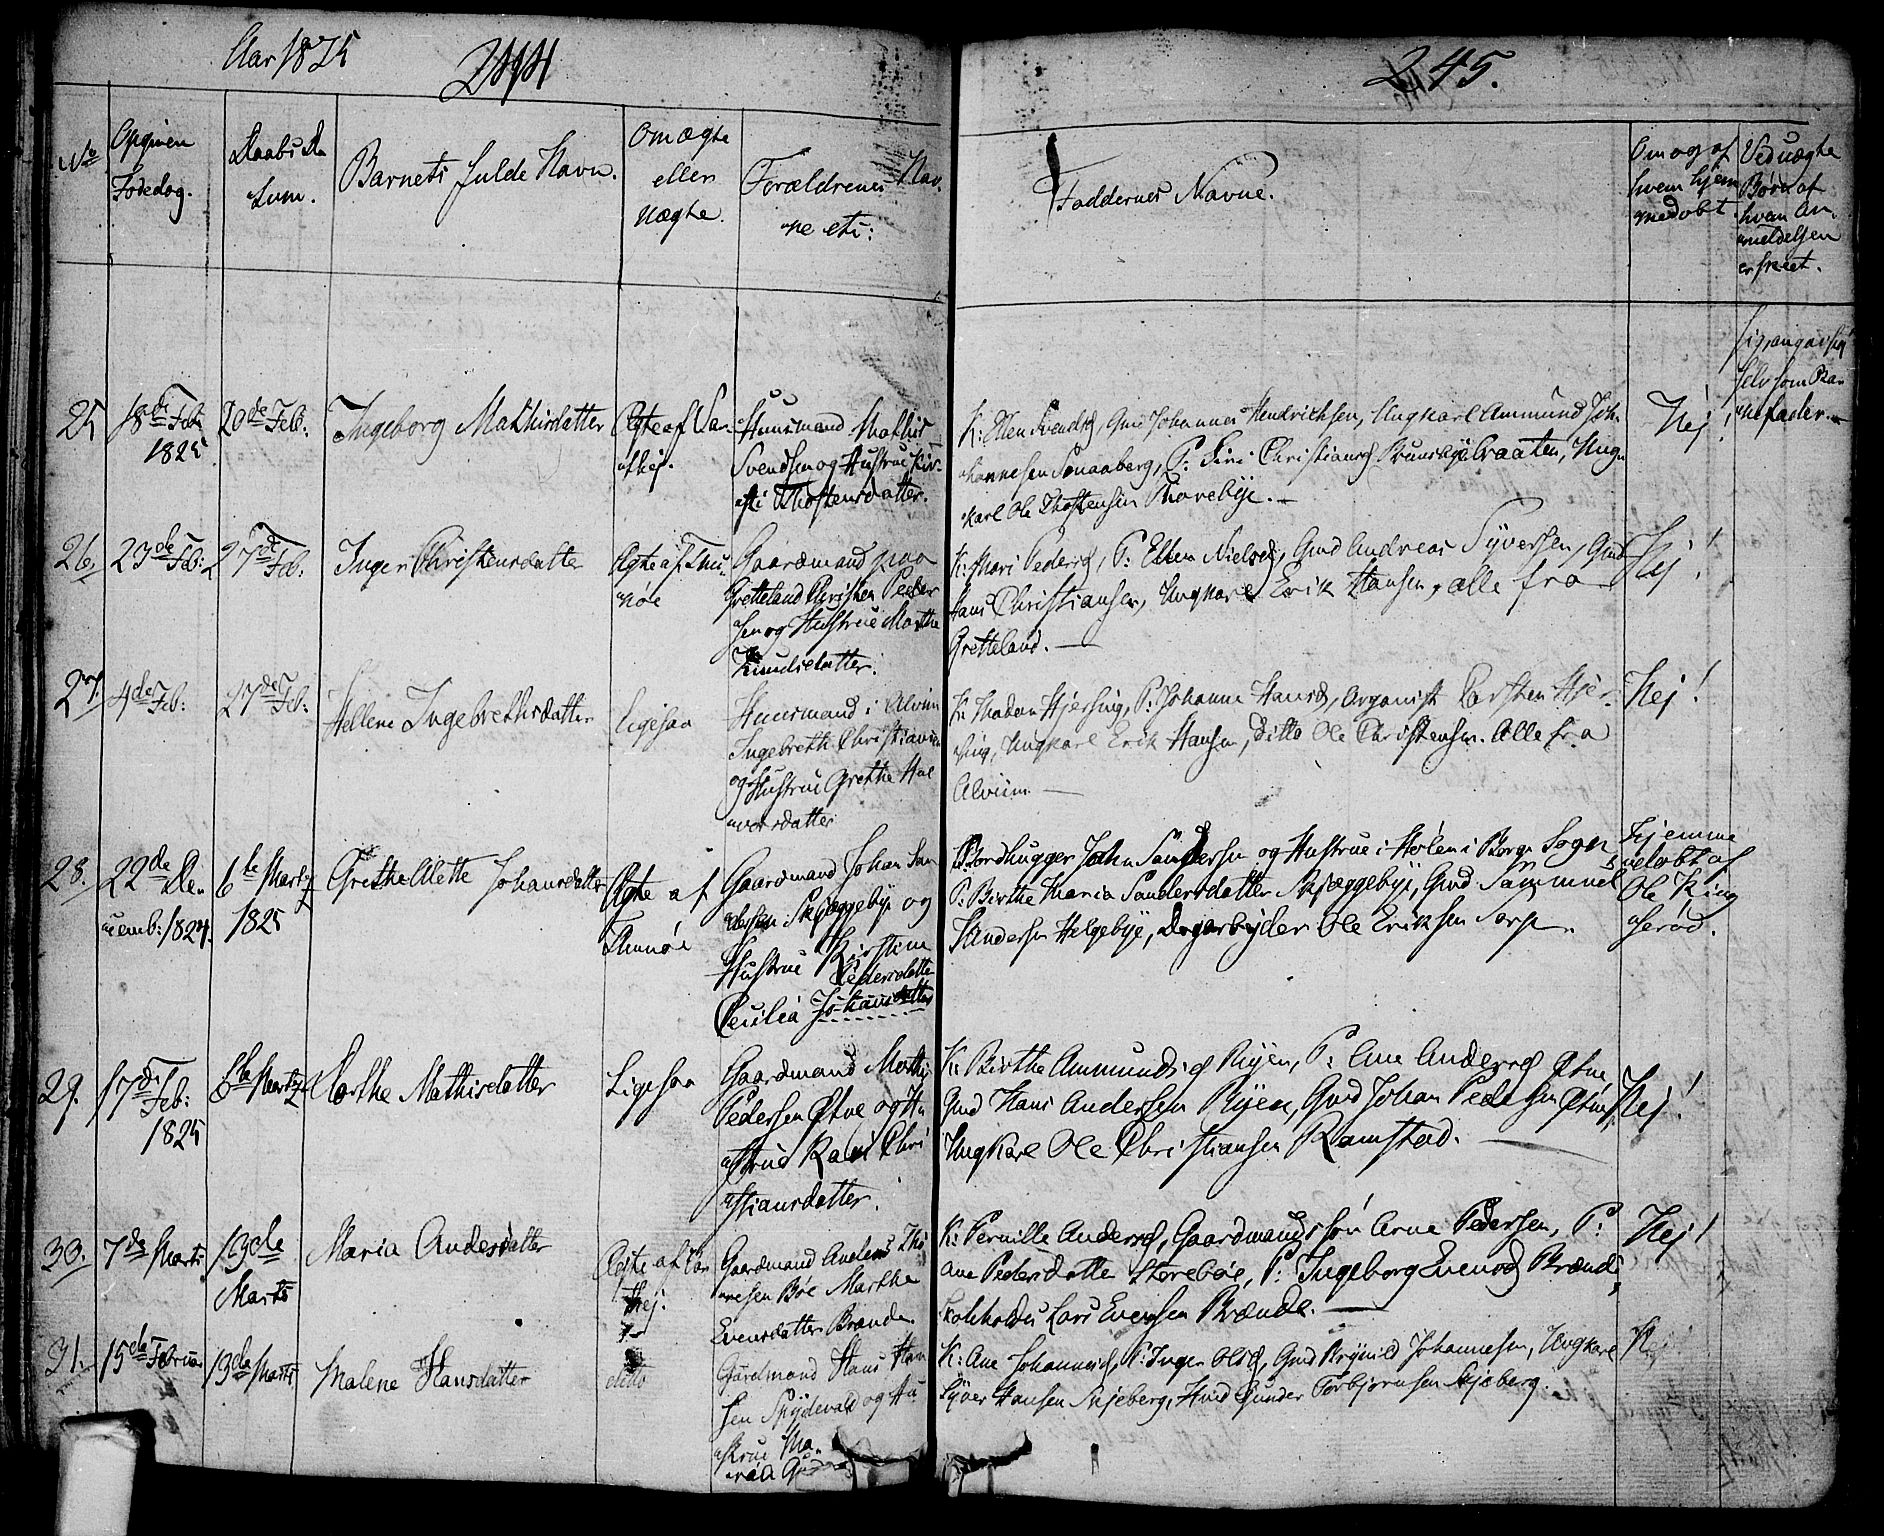 Aar 1825
244
245.
No
Opgiven
Fødedag.
Daabs Da
tum.
Barnets fulde Navn.
Om ægte
eller
uægte.
Forældrenes Nav
ne etc:
Faddernes Navne.
Om og af
hvem hjem
medøbt
Ved uægte
Børn af
hvem An
meldelsen
er skeet.
25
18de Feb
1825
20de Feb:
Ingeborg Mathisdatter
Ægte af
Huusmand Mathis
Svendsen og Hustrue Kir
sti Thostensdatter.
K: Ellen Svendsd, Gmd Johannes Hendrichsen, Ungkarl Ammund Joh
hannesen, P: Siri Christiansd, Ung
karl Ole Thostensen
Nej!
selv som Ba
nefader.
26
23de Feb:
27de Feb:
Inger Christensdatter
Ægte af Thu
nøe
Gaardmand paa
Gretteland Christen Peder
sen og Hustrue Marthe
Knudsdatter.
K: Mari Pedersd, P: Ellen Nielsd, Gmd Andreas Syversen, Gmd
Hans Christiansen, Ungkarl Erik Hansen, alle fra
Gretteland.
Nej!
27
4de Feb:
27de Feb:
Hellene Ingebrethsdatter
ligesaa
Huusmand i Alvim
Ingebreth Christiansen
og Hustrue Grethe Hal
vorsdatter
K: Madam Hjersing, P: Johanne Hansd, Organist Carsten Hjer
sing, Ungkarl Erik Hansen, Ditto Ole Christensen. Alle fra
Alvim
Nej!
28.
22de De
cemb: 1824.
6te Martz
1825
Grethe Mette Johansdatter
Ægte af
Thunøe
Gaardmand Johan San
dersen Skjæggebye og
Hustrue Kirstine
Pedersdatter
Cecilia Johansdatter
Bordhugger John Sandersen og Hustrue i Hølen i Borge Sogn
P: Birthe Maria Sandersdatter Skjæggebye, Gmd Sammuel
Andersen Helgebye, Dagarbyder Ole Eriksen Torp.
Hjemme
døbt af
Ole King
serød.
29.
17de
Feb:
1825
6te Martz
Marthe Mathisdatter
Ligesaa
Gaardmand Mathis
Pedersen Østve og Hu
strue Kari Chri
stiansdatter.
K: Birthe Ammundsd Ryen, P: Ane Andersd Østve
Gmd Hans Andersen Ryen, Gmd Johan Pedersen Østve
Ungkarl Ole Christiansen Ramstad.
Nej!
30.
7de Marts
13de
Marts
Maria Andersdatter
Ægte af
Gaardmand Anders Tho
resen Bøe Marthe
Evensdatter Brænde
K: Pernille Andersd, Gaardmandssøn Arne Pedersen, P:
Ane Pedersdatter Storebøe, P: Ingeborg Evensd Brænde,
Lars Evensen Brænde.
Nej!
31.
15de Februar
13de Marts
Malene Hansdatter
ditto
Gaardmand Hans Han
sen Spydevold og Hu
strue Ma
K: Ane Johannesd, P: Inger Olsd, Gmd Brynild Johannesen, Ungkarl
Syver Hansen Skjeberg, Hmd Gunder Torbjørnsen Skjeberg.
Nej